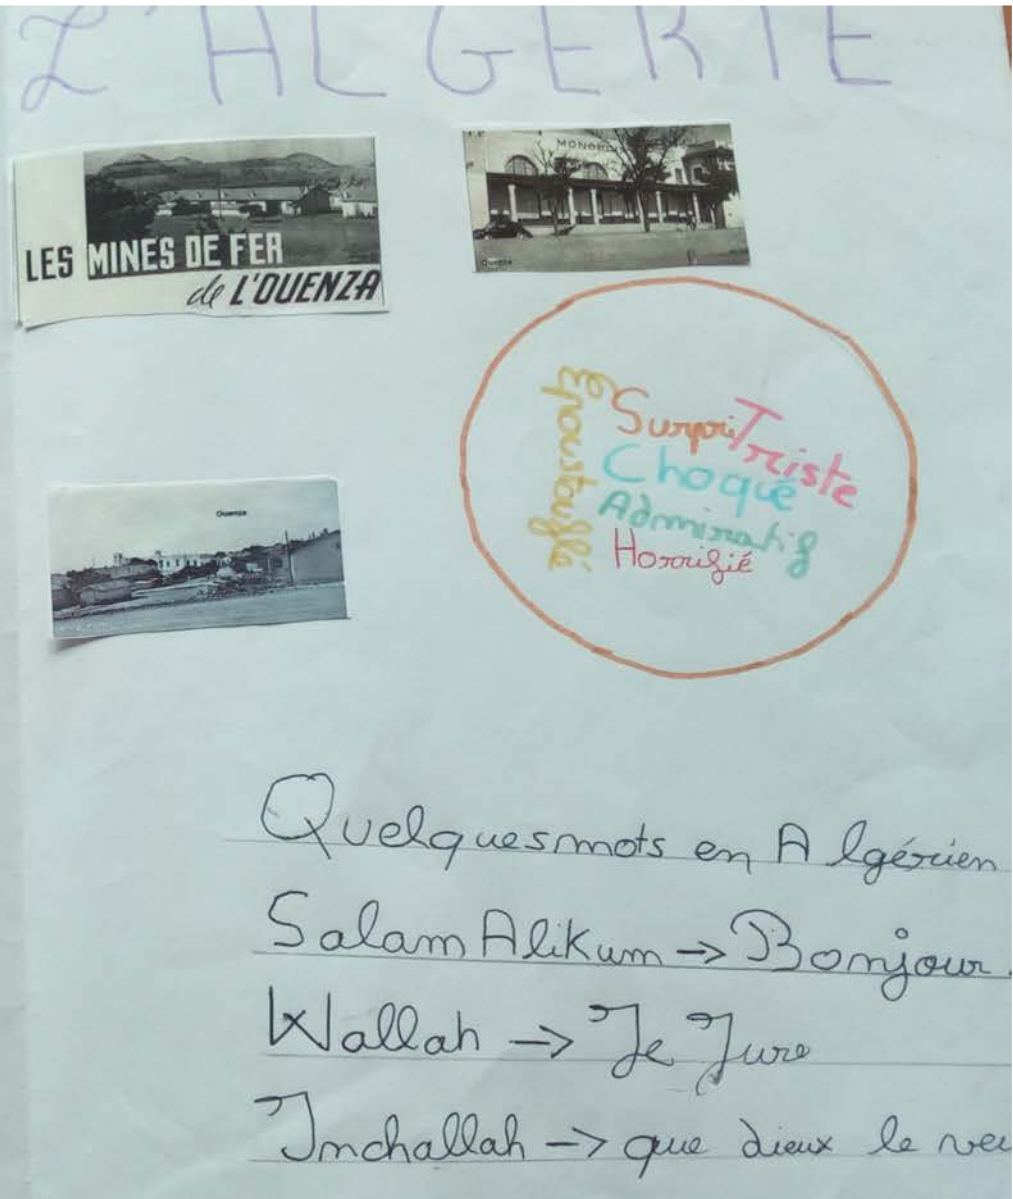 L'ALGERIE
LES MINES DE FER
de L'OUENZA
Ouenza
Ouenza
Epoustouflé
Surpri
Triste
Choqué
Admiratif
Horrifié
Quelques mots en Algérien
Salam Alikum -> Bonjour.
Wallah -> Je Jure
Inchallah -> que dieux le